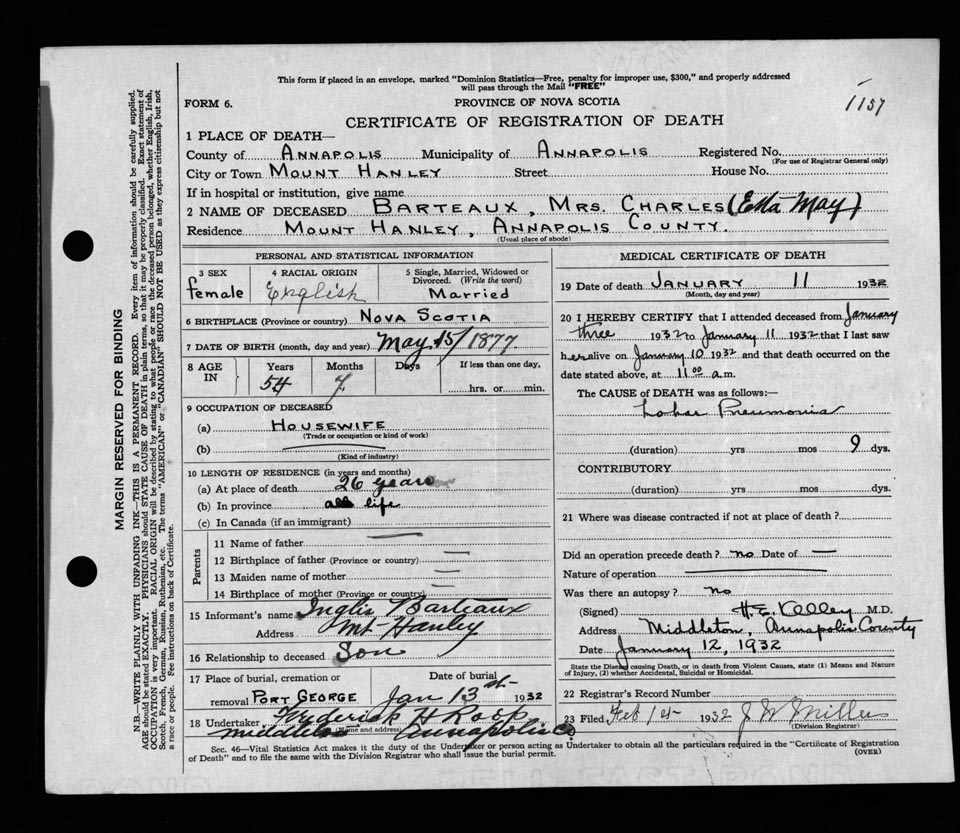 This form if placed in an envelope, marked "Dominion Statistics—Free, penalty for improper use, $300," and properly addressed
will pass through the Mail "FREE"
1157
FORM 6.
PROVINCE OF NOVA SCOTIA
CERTIFICATE OF REGISTRATION OF DEATH
1 PLACE OF DEATH—
County of ANNAPOLIS Municipality of ANNAPOLIS Registered No.
(For use of Registrar General only)
City or Town MOUNT HANLEY Street House No.
If in hospital or institution, give name
2 NAME OF DECEASED BARTEAUX, MRS. CHARLES (Etta May)
Residence MOUNT HANLEY, ANNAPOLIS COUNTY.
(Usual place of abode)
PERSONAL AND STATISTICAL INFORMATION
3 SEX female
4 RACIAL ORIGIN English
5 Single, Married, Widowed or Divorced. (Write the word) MARRIED
6 BIRTHPLACE (Province or country) NOVA SCOTIA
7 DATE OF BIRTH (month, day and year) May 15/1877
8 AGE IN Years 54 Months 7 Days If less than one day, hrs. or min.
9 OCCUPATION OF DECEASED
(a) HOUSEWIFE
(Trade or occupation or kind of work)
(b)
(Kind of industry)
10 LENGTH OF RESIDENCE (in years and months)
(a) At place of death 26 years
(b) In province all life
(c) In Canada (if an immigrant)
Parents
11 Name of father
12 Birthplace of father (Province or country)
13 Maiden name of mother
14 Birthplace of mother (Province or country)
15 Informant's name Inglis Barteaux
Address Mt Hanley
16 Relationship to deceased Son
17 Place of burial, cremation or removal PORT GEORGE Date of burial Jan 13th 1932
18 Undertaker Frederick H Roop
(Name and address)
Middleton Annapolis Co
MEDICAL CERTIFICATE OF DEATH
19 Date of death JANUARY 11 1932
(Month, day and year)
20 I HEREBY CERTIFY that I attended deceased from January
three 1932 to January 11 1932 that I last saw
her alive on January 10 1932 and that death occurred on the
date stated above, at 11 00 a.m.
The CAUSE of DEATH was as follows:
Lobar Pneumonia
(duration) yrs mos 9 dys.
CONTRIBUTORY
(duration) yrs mos dys.
21 Where was disease contracted if not at place of death?
Did an operation precede death? no Date of —
Nature of operation
Was there an autopsy? no
(Signed) H.E. Kelley M.D.
Address Middleton, Annapolis County
Date January 12, 1932
State the Disease causing Death, or in death from Violent Causes, state (1) Means and Nature
of Injury, (2) whether Accidental, Suicidal or Homicidal.
22 Registrar's Record Number
23 Filed Feb 1st 1932 J W Miller
(Division Registrar)
Sec. 46—Vital Statistics Act makes it the duty of the Undertaker or person acting as Undertaker to obtain all the particulars required in the "Certificate of Registration
of Death" and to file the same with the Division Registrar who shall issue the burial permit.
(OVER)
MARGIN RESERVED FOR BINDING
N.B.—WRITE PLAINLY WITH UNFADING INK—THIS IS A PERMANENT RECORD. Every item of information should be carefully supplied.
AGE should be stated EXACTLY. PHYSICIANS should STATE CAUSE OF DEATH in plain terms, so that it may be properly classified. Exact statement of
OCCUPATION is very important. RACIAL ORIGIN will be described by stating to what people or race the deceased person belonged, whether English, Irish,
Scotch, French, German, Russian, Ruthenian, etc. The terms "AMERICAN" or "CANADIAN" SHOULD NOT BE USED as they express citizenship but not
a race or people. Fee instructions on back of Certificate.